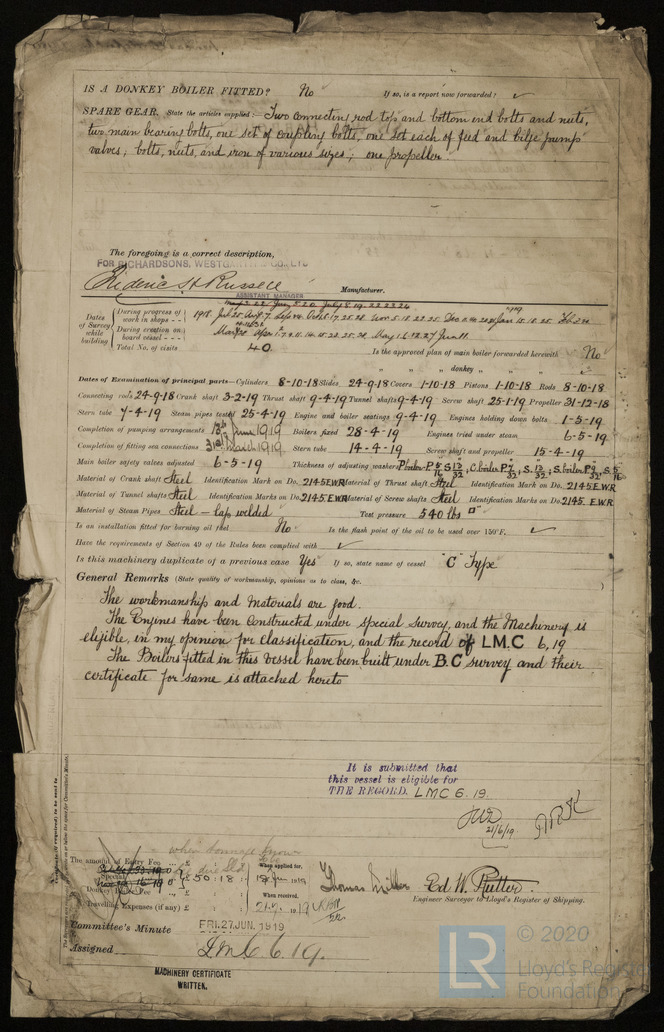 IS A DONKEY BOILER FITTED? No If so, is a report now forwarded? ✓
SPARE GEAR. State the articles supplied:— Two connecting rod top and bottom end bolts and nuts,
two main bearing bolts, one set of coupling bolts, one set each of feed and bilge pump
valves; bolts, nuts, and iron of various sizes; one propeller
The foregoing is a correct description,
FOR RICHARDSONS, WESTGARTH & CO., LTD
Frederic H Russell Manufacturer.
ASSISTANT MANAGER
Dates of Survey while building
During progress of work in shops - -
During erection on board vessel - - -
Total No. of visits 40
Is the approved plan of main boiler forwarded herewith No
" " " donkey " " "
Dates of Examination of principal parts—Cylinders 8-10-18 Slides 24-9-18 Covers 1-10-18 Pistons 1-10-18 Rods 8-10-18
Connecting rods 24-9-18 Crank shaft 3-2-19 Thrust shaft 9-4-19 Tunnel shafts 9-4-19 Screw shaft 25-1-19 Propeller 31-12-18
Stern tube 7-4-19 Steam pipes tested 25-4-19 Engine and boiler seatings 9-4-19 Engines holding down bolts 1-5-19
Completion of pumping arrangements 18th June 1919 Boilers fixed 28-4-19 Engines tried under steam 6-5-19
Completion of fitting sea connections 31st March 1919 Stern tube 14-4-19 Screw shaft and propeller 15-4-19
Main boiler safety valves adjusted 6-5-19 Thickness of adjusting washers P boiler P 5/16 S 13/32, C boiler P 7/32, S. 13/32, S. boiler P 9/32, S. 5/16
Material of Crank shaft Steel Identification Mark on Do. 2145 EWR Material of Thrust shaft Steel Identification Mark on Do. 2145 E.W.R
Material of Tunnel shafts Steel Identification Marks on Do. 2145 EWR Material of Screw shafts Steel Identification Marks on Do. 2145 E.W.R
Material of Steam Pipes Steel — Lap welded Test pressure 540 lbs □"
Is an installation fitted for burning oil fuel No Is the flash point of the oil to be used over 150°F. ✓
Have the requirements of Section 49 of the Rules been complied with ✓
Is this machinery duplicate of a previous case Yes If so, state name of vessel "C" Type
General Remarks (State quality of workmanship, opinions as to class, &c. )
The workmanship and materials are good.
The Engines have been constructed under special survey, and the Machinery is
eligible, in my opinion for classification, and the record of L.M.C 6,19
The Boilers fitted in this vessel have been built under B.C survey and their
certificate for same is attached hereto
It is submitted that
this vessel is eligible for
THE RECORD. LMC 6.19.
21/6/19
when tonnage known
The amount of Entry Fee ... £ When applied for,
Special £50:18: 1919
Donkey Boiler Fee ... £ When received,
Travelling Expenses (if any) £ 1919
Thomas Miller Ed W. Rutter.
Engineer Surveyor to Lloyd's Register of Shipping.
Committee's Minute FRI. 27 JUN. 1919
Assigned LMC 6.19.
MACHINERY CERTIFICATE
WRITTEN.
LR © 2020
Lloyd's Register
Foundation